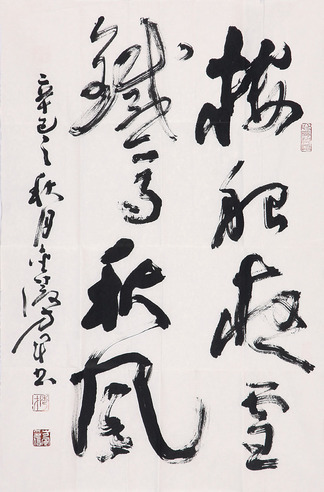 樓船夜雪
鐵馬秋風
辛巳之秋月書